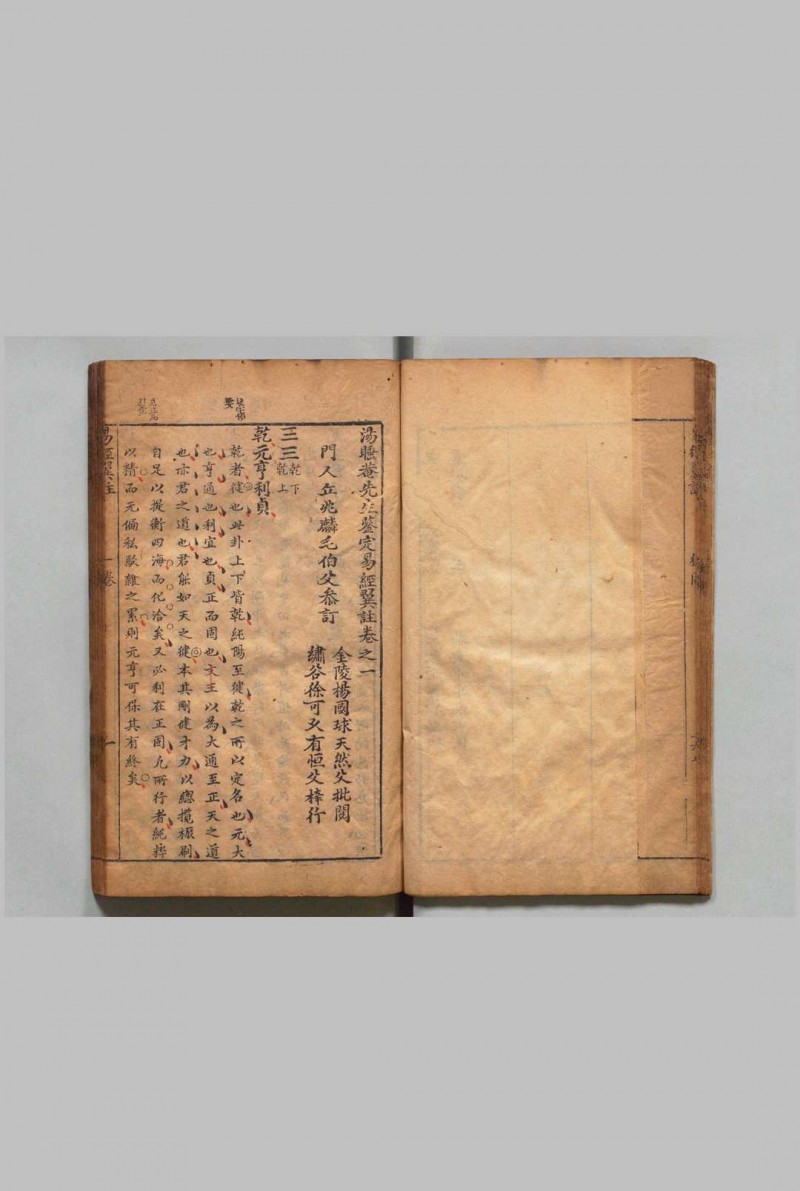 湯睡菴先生鍳定易經翼註卷之一
門人丘兆麟毛伯父叅訂
金陵楊國球天然父批閱
繡谷徐可久有恒父梓行
三三乾下乾上
乾元亨利貞
乾者健也此卦上下皆乾純陽至健乾之所以定名也元大
也亨通也利宜也貞正而固也文王以為大通至正天之道
也亦君之道也君能如天之健本其剛健才力以總攬振刷
自足以提衡四海而化洽矣又必利在正固凡所行者純粹
以精而无偏私駁雜之累則元亨可保其有終矣
易經翼註 一卷 一